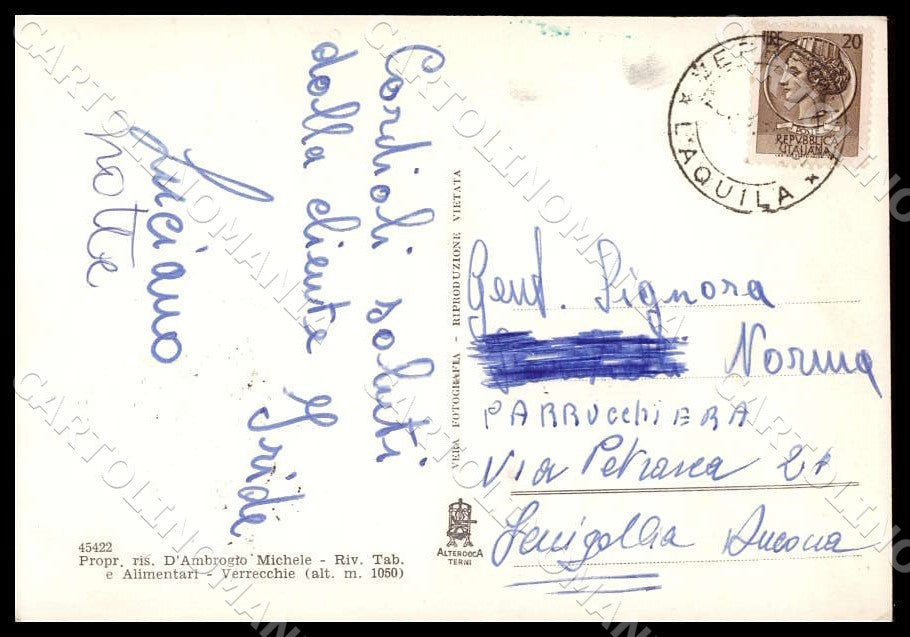 Cordioli saluti
dalla cliente Iride
Luciano
notte
45422
Propr. ris. D'Ambrogio Michele - Riv. Tab.
e Alimentari - Verrecchie (alt. m. 1050)
VERA FOTOGRAFIA - RIPRODUZIONE VIETATA
ALTEROCCA
TERNI
LIRE 20
POSTE
REPUBBLICA
ITALIANA
* L'AQUILA *
Gent. Signora
Norma
PARRUCCHIERA
Via Petrarca 21
Senigallia Ancona
CARTOLINOMANIA